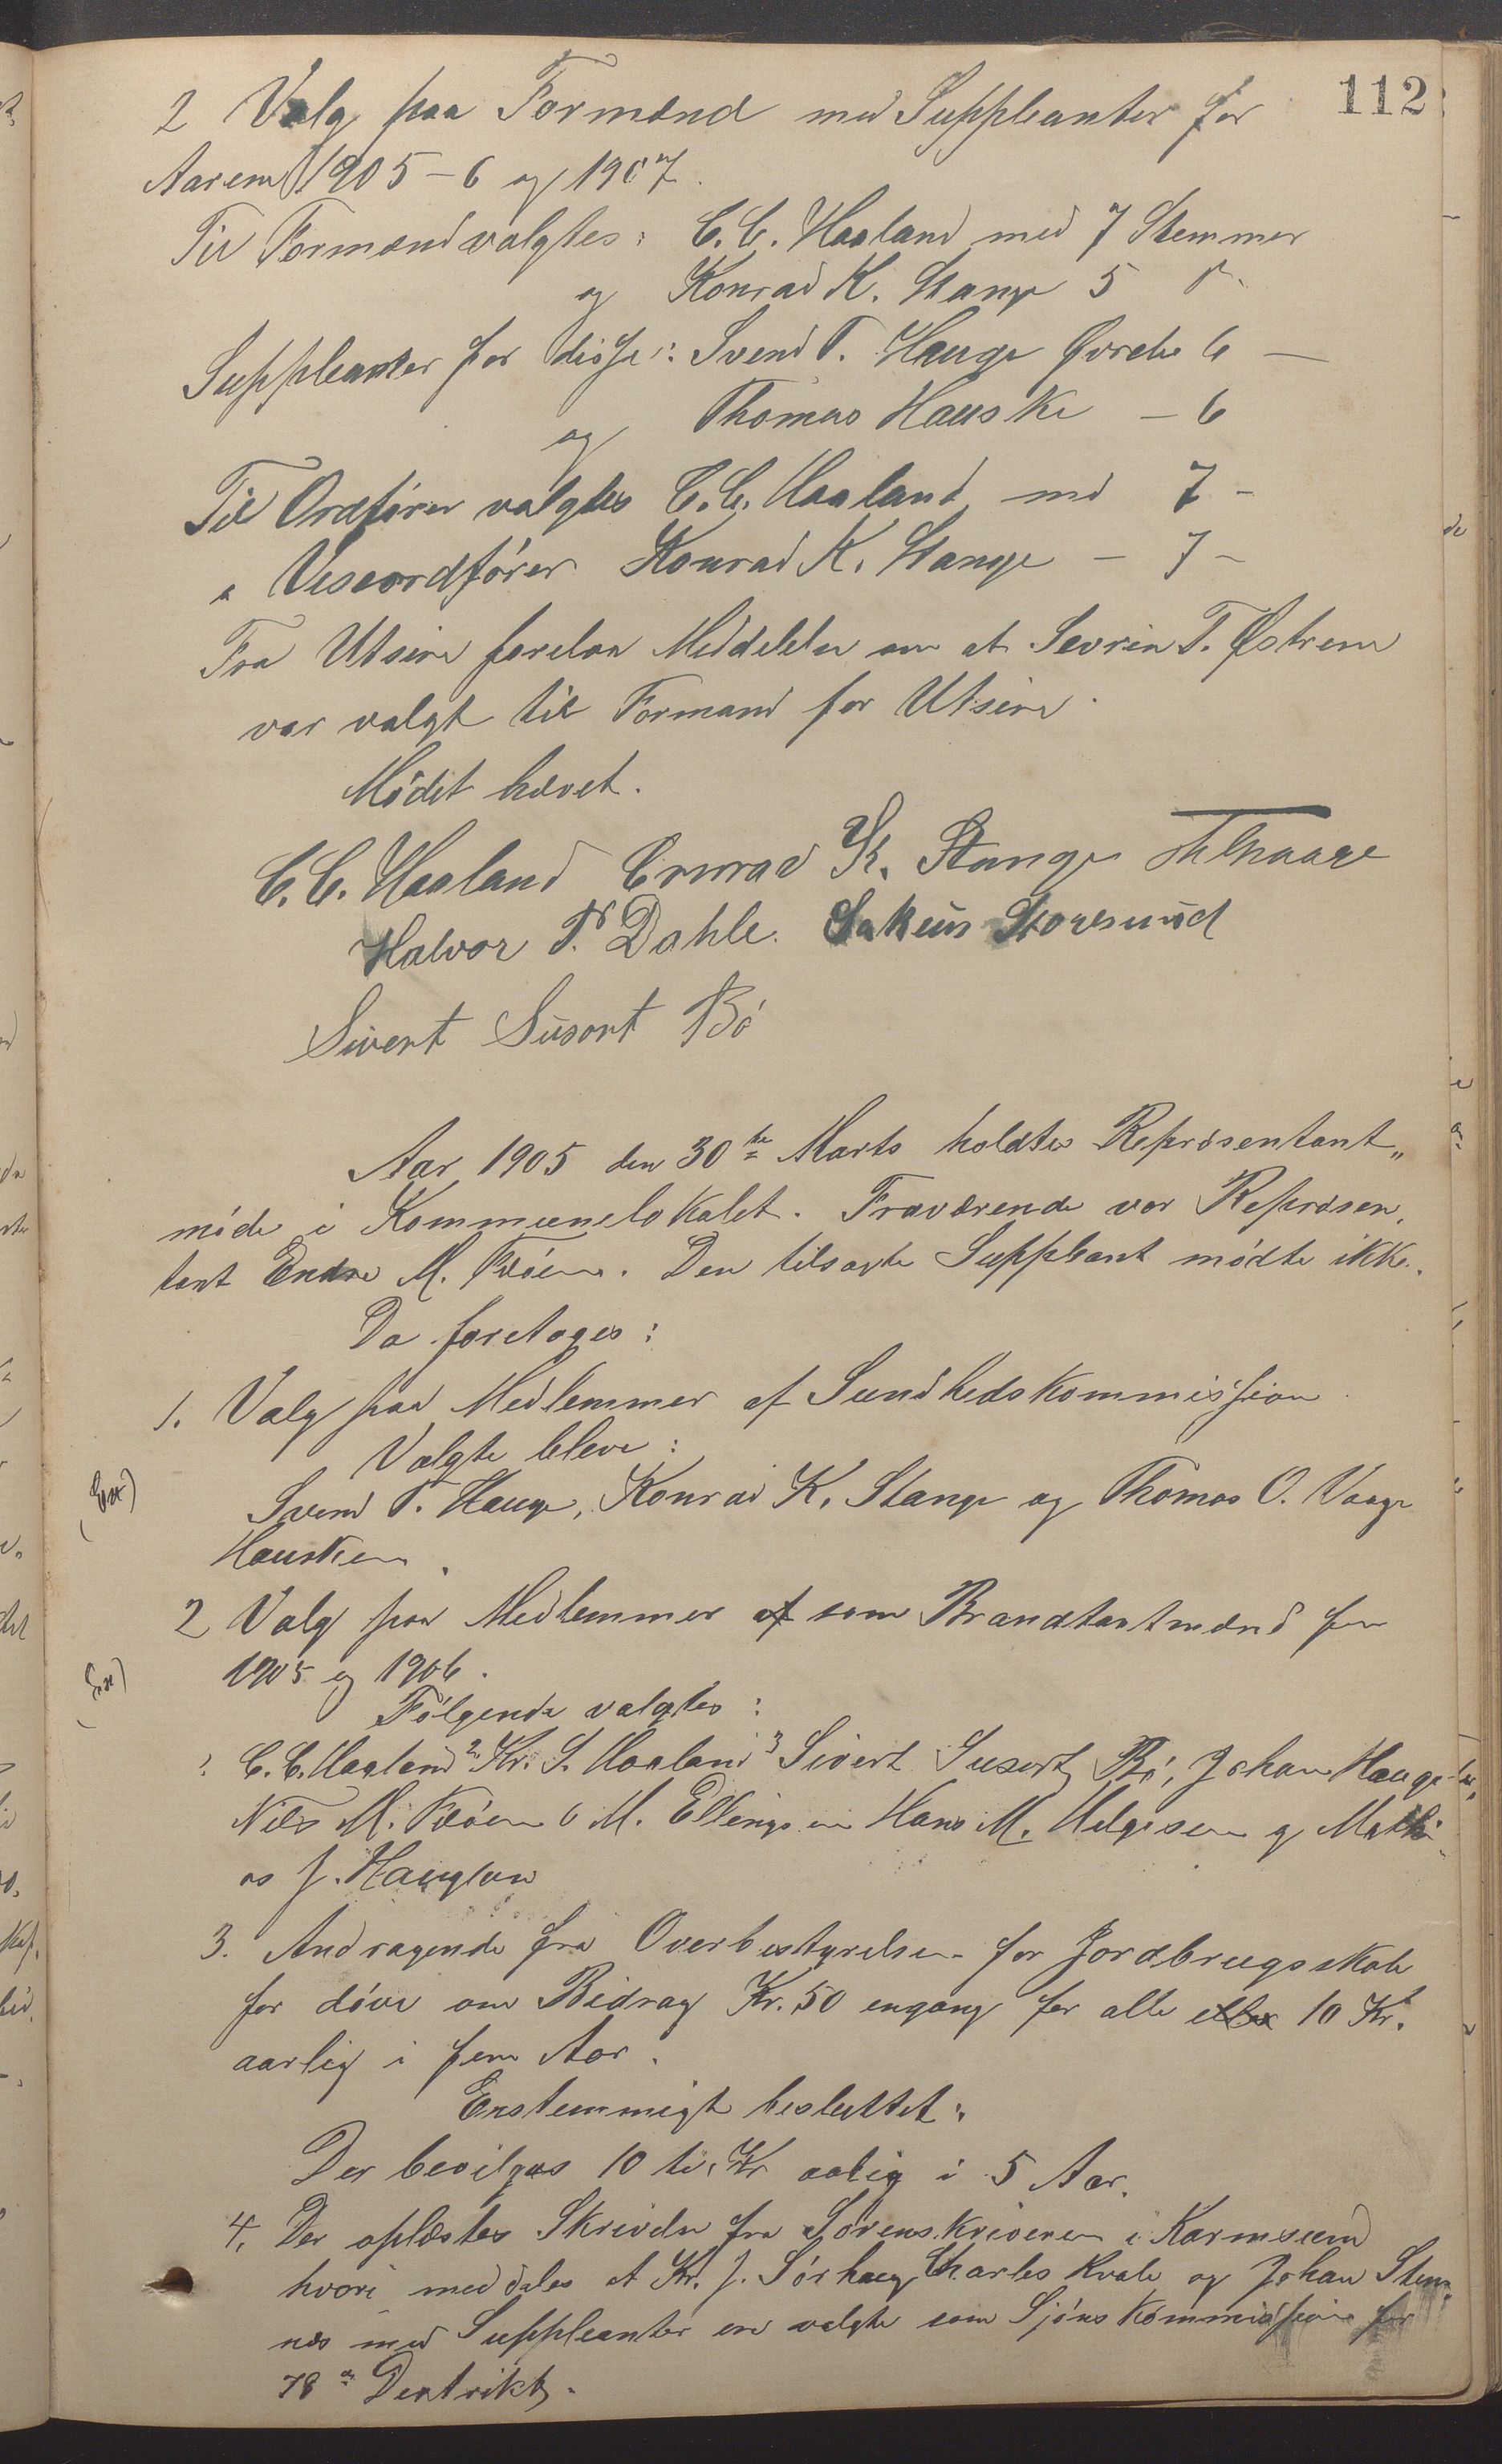 112
2 Valg paa Formænd med Suppleanter for
Aarene 1905-6 og 1907.
Til Formænd valgtes: C. C. Haaland med 7 Stemmer
og Konrad K. Stange 5
Suppleanter for disse: Svend T. Hauge Øvrebø 6 —
og Thomas Hauske - 6
Til Ordfører valgtes C. C. Haaland med 7 -
" Viseordfører Konrad K. Stange - 7 -
Fra Utsire forelaa Meddelelse om at Sevrin T. Østrem
var valgt til Formand for Utsire.
Mødet hævet.
C. C. Haaland Conrad K. Stange
Halvor T. Dahle. Sakius Storesund
Sivert Susort Bø
Aar 1905 den 30te Marts holdtes Repræsentant„
møde i Kommunelokalet. Fraværende var Repræsen„
tant Endre M. Feøen. Den tilsagte Suppleant mødte ikke.
Da foretoges:
1. Valg paa Medlemmer af Sundhedskommission
Valgte bleve:
Ext)
Svend T. Hauge, Konrad K. Stange og Thomas O. Vaage
Hausken.
2 Valg paa Medlemmer af som Brandtaxtmænd for
1905 og 1906.
Ext)
Følgende valgtes:
C. C. Haaland 2 Kr. S. Haaland 3 Sivert Susort Bø, Johan Hauge
Nils M. Feøen 6 M. Ellingsen Hans M. Helgesen og Mathi
as J. Hauglan
3. Andragende fra Overbestyrelsen for Jordbrugsskole
for døve om Bidrag Kr. 50 engang for alle eller 10 Kr.
aarlig i fem Aar.
Enstemmigt besluttet:
Der bevilges 10 ti Kr aalig i 5 Aar.
4. Der oplæstes Skrivelse fra Sorenskriveren i Karmsund
hvori meddeles at Kr. J. Sørhaug Charles Kvale og Johan Stem„
nes med Suppleanter ere valgte som Sjønskommission for
78de Destrikt.